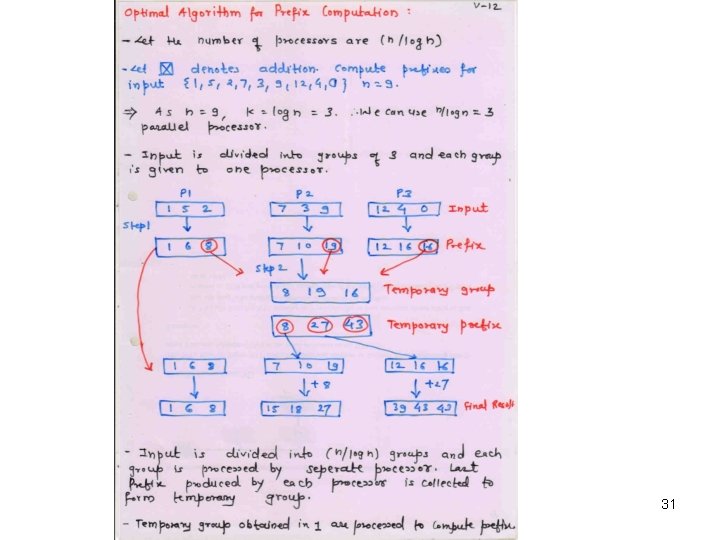 Optimal Algorithm for Prefix Computation :
V-12
- Let the number of processors are (n/logn)
- Let ☒ denotes addition. Compute prefixes for
input {1, 5, 2, 7, 3, 9, 12, 4, 0} n = 9.
⇒ As n = 9, k = log n = 3. ∴ We can use n/logn = 3
parallel processor.
- Input is divided into groups of 3 and each group
is given to one processor.
P1 P2 P3
1 5 2 7 3 9 12 4 0 Input
Step1
1 6 8 7 10 19 12 16 16 Prefix
Step 2
8 19 16 Temporary group
8 27 43 Temporary prefix
1 6 8 7 10 19 12 16 16
+8 +27
1 6 8 15 18 27 39 43 43 Final Result
- Input is divided into (n/logn) groups and each
group is processed by seperate processor. Last
Prefix produced by each processor is collected to
form temporary group.
- Temporary group obtained in 1 are processed to compute prefix
31